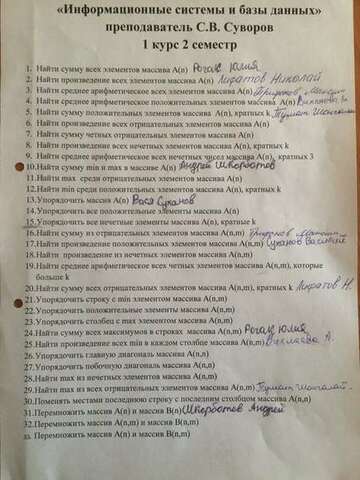 «Информационные системы и базы данных»
преподаватель С.В. Суворов
1 курс 2 семестр
1. Найти сумму всех элементов массива A(n) Рогаж Юлия
2. Найти произведение всех элементов массива A(n) Лифатов Николай
3. Найти среднее арифметическое всех элементов массива A(n)
4. Найти среднее арифметическое положительных элементов массива A(n)
5. Найти сумму положительных элементов массива A(n), кратных k
6. Найти произведение всех отрицательных элементов массива A(n)
7. Найти сумму четных отрицательных элементов массива A(n)
8. Найти произведение всех нечетных элементов массива A(n), кратных k
9. Найти среднее арифметическое всех нечетных чисел массива A(n), кратных 3
10. Найти сумму min и max в массиве A(n) Андрей Шкерботов
11. Найти max среди отрицательных элементов массива A(n)
12. Найти min среди положительных элементов массива A(n), кратных k
13. Упорядочить массив A(n) Вася Суханов
14. Упорядочить все положительные элементы массива A(n)
15. Упорядочить все нечетные элементы массива A(n), кратные k
16. Найти сумму из отрицательных элементов массива A(n,m)
17. Найти произведение из положительных элементов массива A(n,m) Суханов Василий
18. Найти произведение из нечетных элементов массива A(n,m)
19. Найти среднее арифметическое всех четных элементов массива A(n,m), которые
больше k
20. Найти сумму всех отрицательных элементов массива A(n,m), кратных k Лифатов Н.
21. Упорядочить строку с min элементом массива A(n,m)
22. Упорядочить положительные элементы массива A(n,m)
23. Упорядочить столбец с max элементом массива A(n,m)
24. Найти сумму всех максимумов в строках массива A(n,m) Рогаж Юлия
25. Найти произведение всех min в каждом столбце массива A(n,m)
26. Упорядочить главную диагональ массива A(n,n)
27. Упорядочить побочную диагональ массива A(n,n)
28. Найти max из нечетных элементов массива A(n,m)
29. Найти max из всех отрицательных элементов массива A(n,m)
30. Поменять местами последнюю строку с последним столбцом массива A(n,n)
31. Перемножить массив A(n) и массив B(n) Шкерботов Андрей
32. Перемножить массив A(n,m) и массив B(m)
33. Перемножить массив A(n,m) и массив B(n,m)